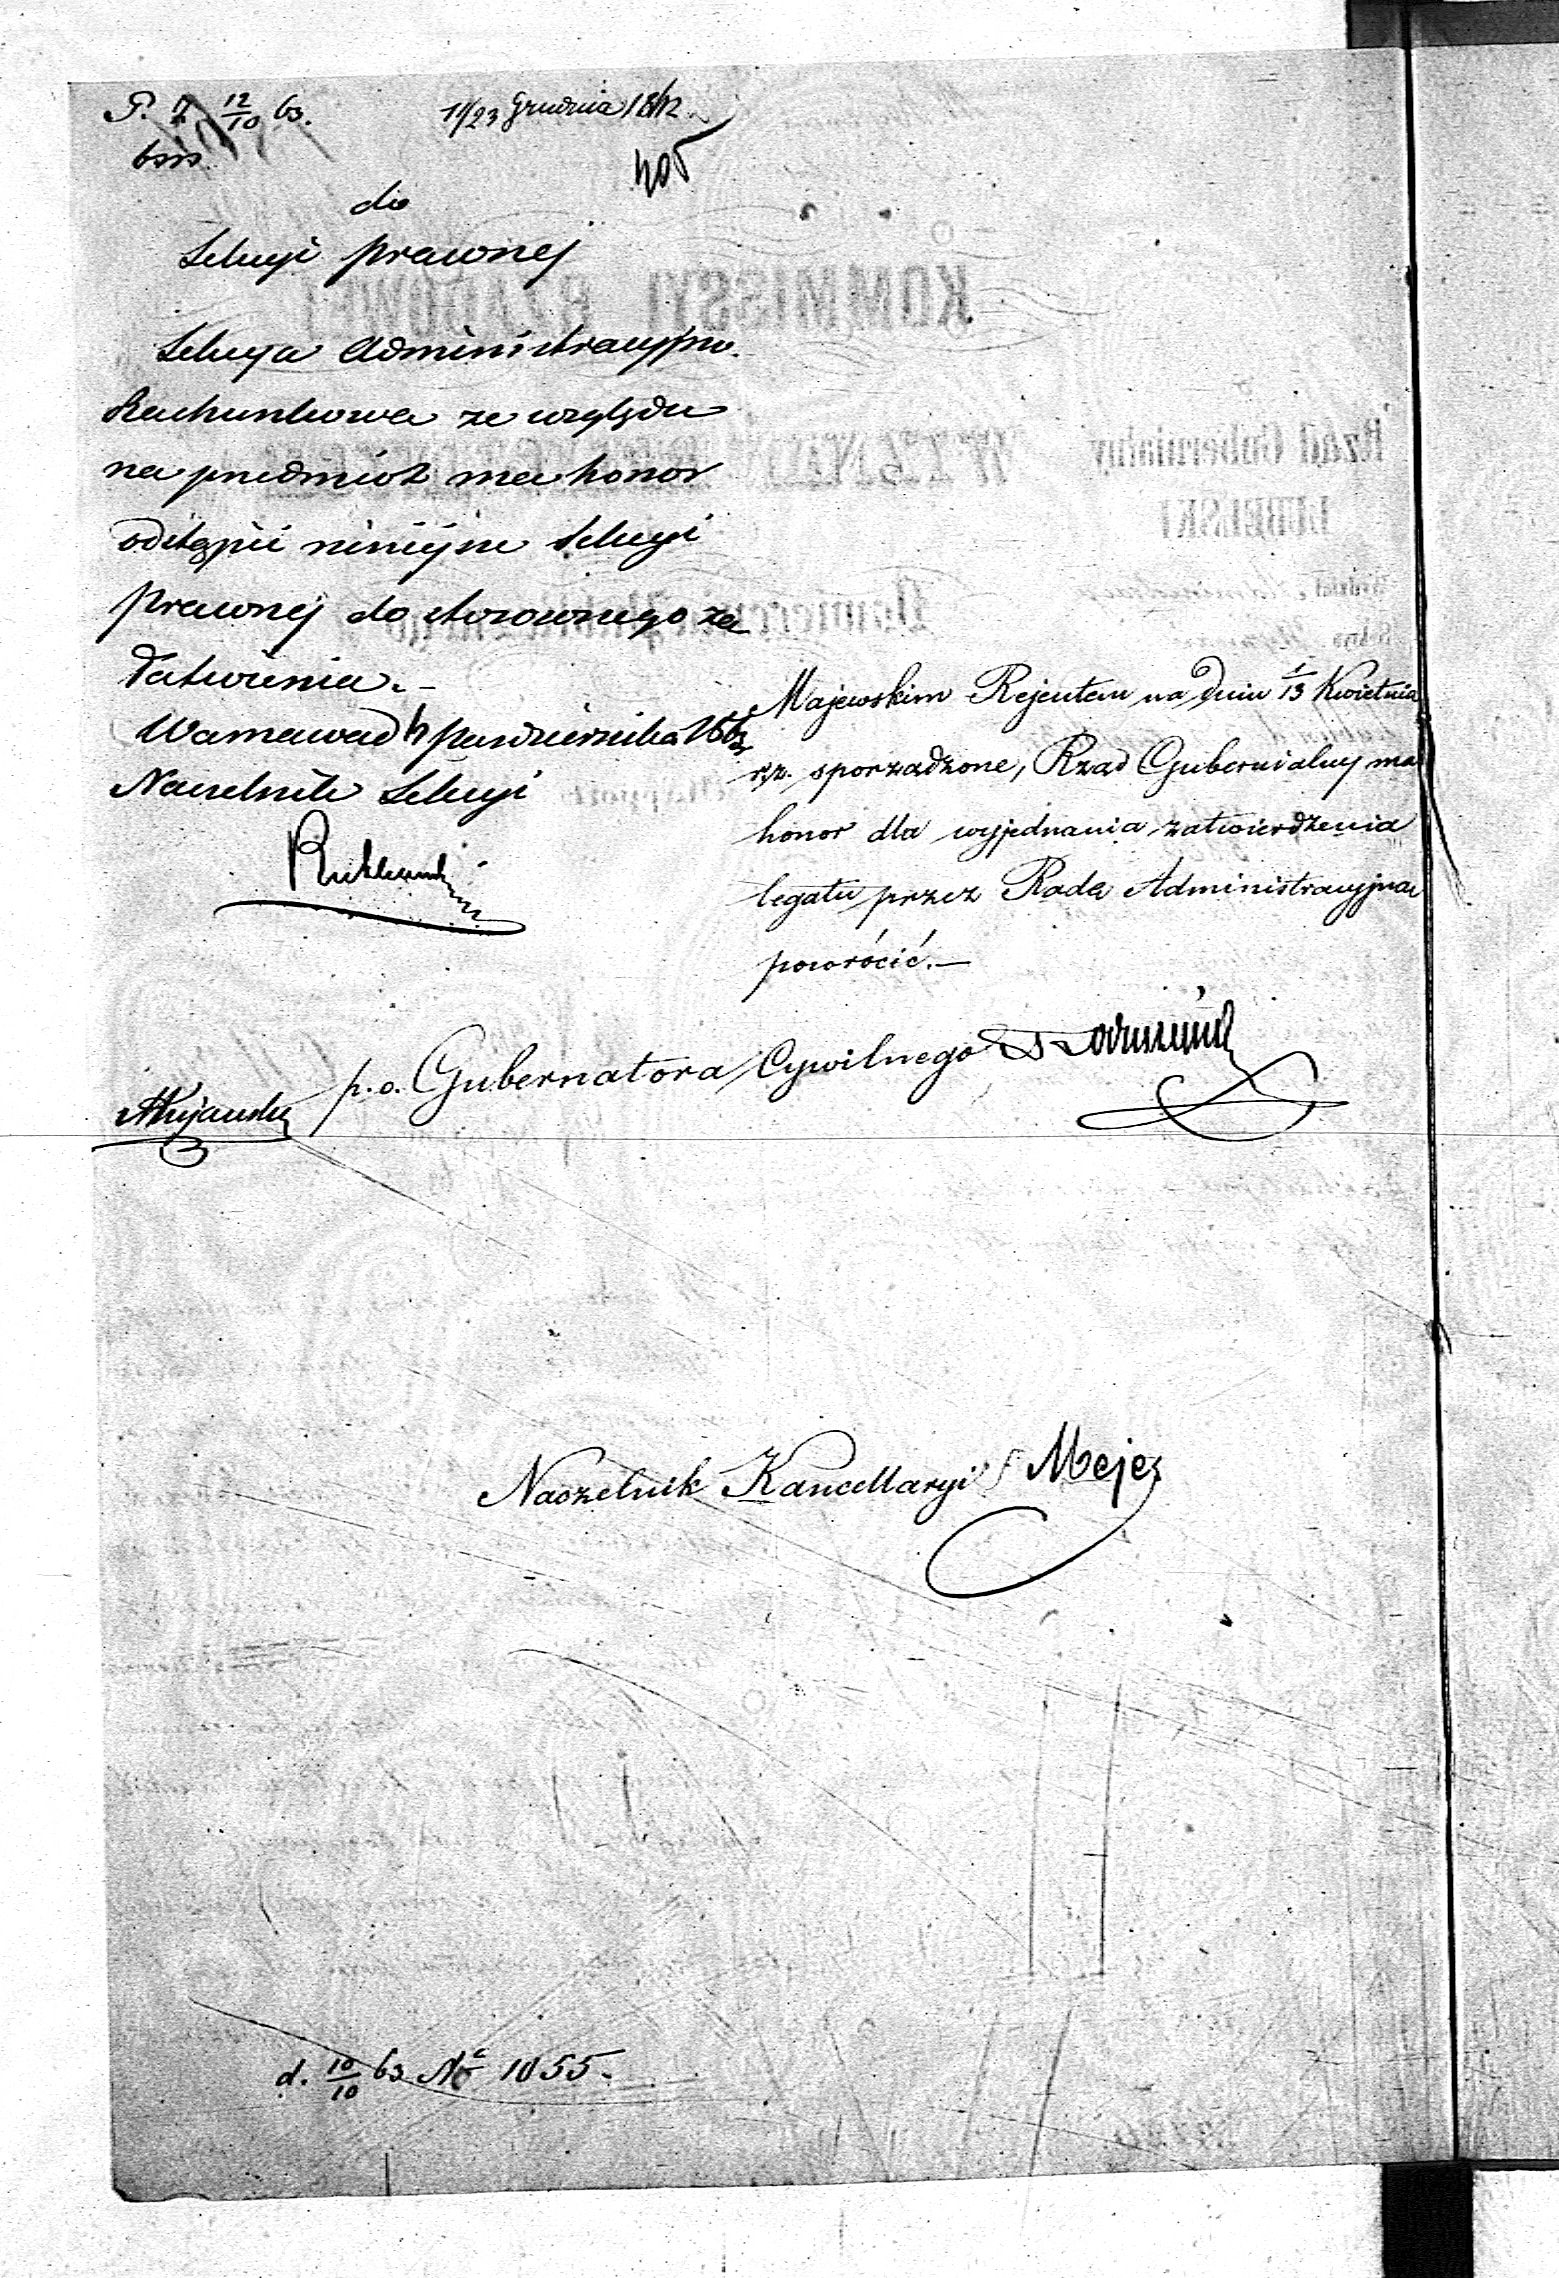 P. 7 12/10 63.
11/23 Grudnia 1842.
405
do
Sekcyi prawnej
Sekcya Administracyjno-
Rachunkowa ze względu
na przedmiot ma honor
odstąpić niniejsze Sekcyi
Prawnej do stosownego za
łatwienia.-
Warszawa d. października 1863
Naczelnik Sekcyi
Majewskim Rejentem na dniu 1/13 Kwietnia
r.z. sporządzone, Rząd Gubernialny ma
honor dla wyjednania zatwierdzenia
legatu przez Radę Administracyjną
powrócić.—
p.o. Gubernatora Cywilnego
Naczelnik Kancellaryi
d. 10/10 63 No 1055.